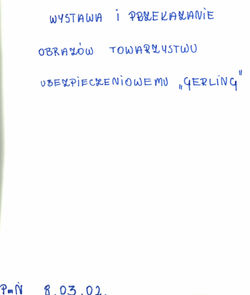 WYSTAWA i PRZEKAZANIE
OBRAZÓW TOWARZYSTWU
UBEZPIECZENIOWEMU „GERLING"
P-Ń 8.03.02.